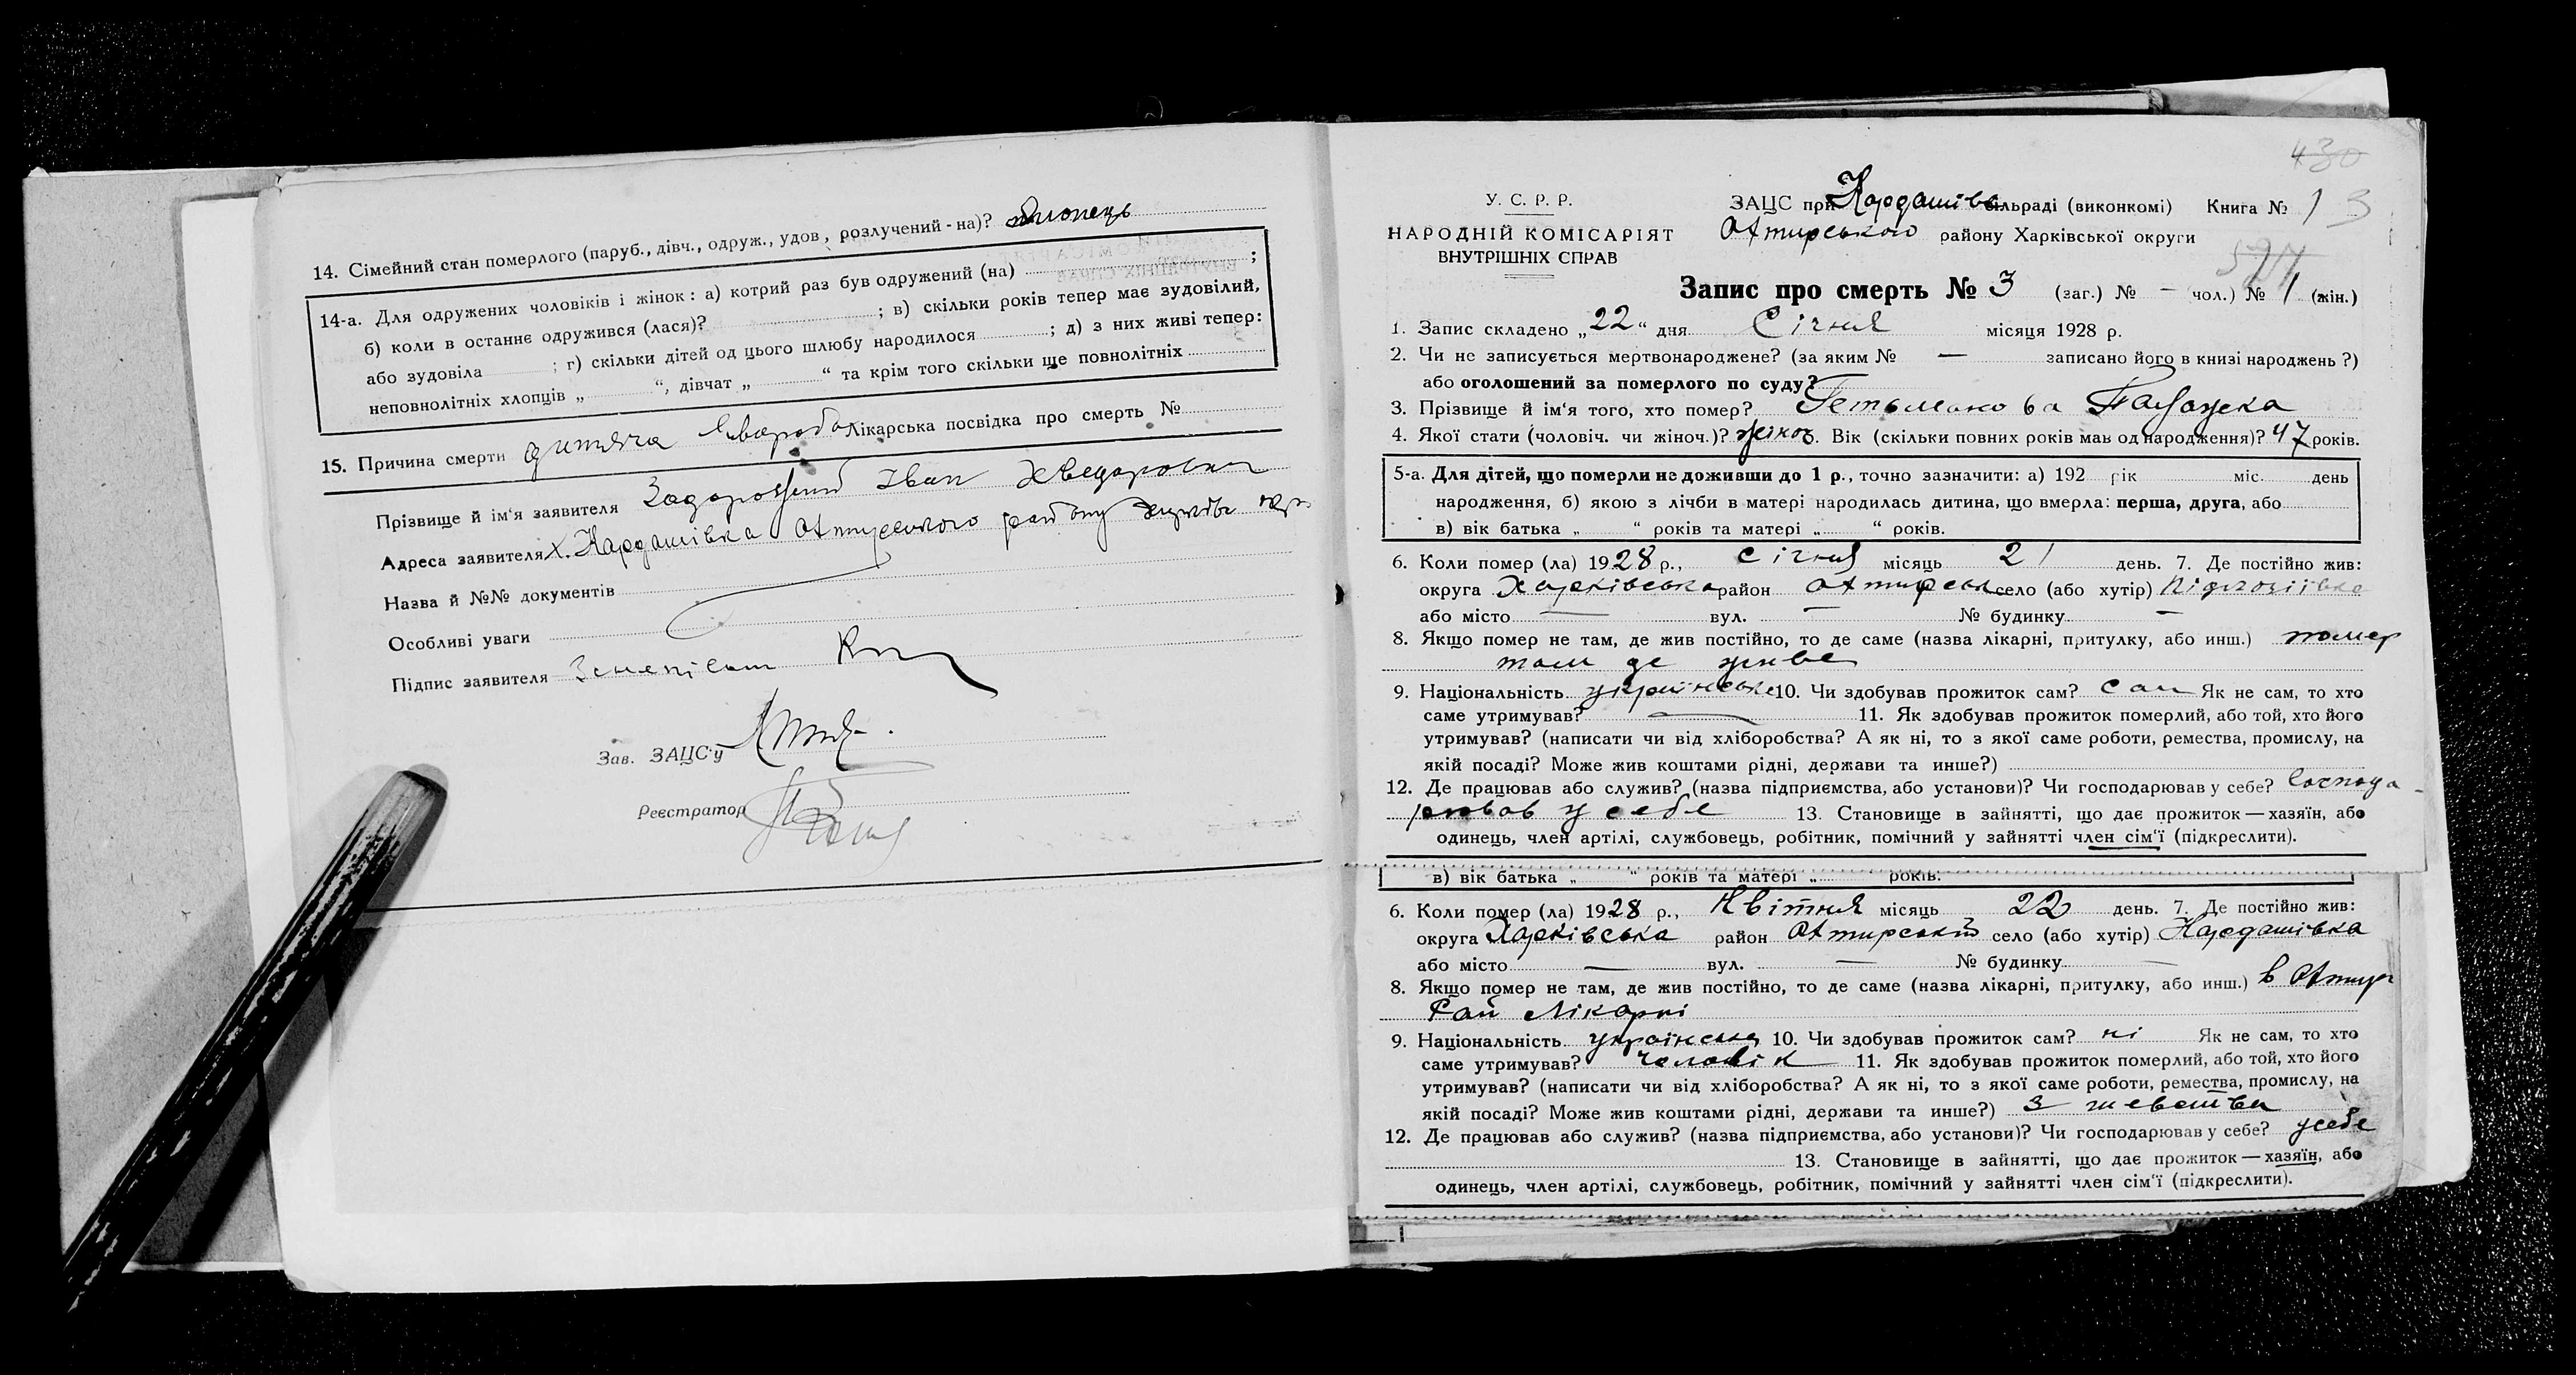 14. Сімейний стан померлого (паруб., дівч., одруж., удов., розлучений-на)? хлопець
14-а. Для одружених чоловіків і жінок: а) котрий раз був одружений (на) ;
б) коли в останнє одружився (лася)? ; в) скільки років тепер має зудовілий,
або зудовіла ; г) скільки дітей од цього шлюбу народилося ; д) з них живі тепер:
неповнолітніх хлопців „ “, дівчат „ “ та крім того скільки ще повнолітніх
15. Причина смерти дитяча хвороба Лікарська посвідка про смерть №
Прізвище й ім‘я заявителя Задорожний Іван Хведорович
Адреса заявителя х. Кардашівка Охтирського району
Назва й №№ документів
Особливі уваги
Підпис заявителя
Зав. ЗАЦС‘у
Реєстратор
430
У. С. Р. Р.
НАРОДНІЙ КОМІСАРІЯТ
ВНУТРІШНІХ СПРАВ
ЗАЦС при Кардашівс сільраді (виконкомі) Книга № 1 3
Охтирського району Харківської округи
Запис про смерть № 3 (заг.) № — чол.) № 1 (жін.)
1. Запис складено „22“ дня Січня місяця 1928 р.
2. Чи не записується мертвонароджене? (за яким № — записано його в книзі народжень?)
або оголошений за померлого по суду?
3. Прізвище й ім‘я того, хто помер? Гетьманова Палажка
4. Якої статі (чоловіч. чи жіноч.)? жіноч 5. Вік (скільки повних років мав од народження)? 47 років.
5-а. Для дітей, що померли не доживши до 1 р., точно зазначити: а) 192 рік міс. день
народження, б) якою з лічби в матері народилась дитина, що вмерла: перша, друга, або
в) вік батька „ “ років та матері „ “ років.
6. Коли помер (ла) 1928 р., січня місяць 21 день. 7. Де постійно жив:
округа Харківська район Охтирськ село (або хутір)
або місто — вул. — № будинку —
8. Якщо помер не там, де жив постійно, то де саме (назва лікарні, притулку, або инш.) помер
там де живе
9. Національність українська 10. Чи здобував прожиток сам? сам Як не сам, то хто
саме утримував? — 11. Як здобував прожиток померлий, або той, хто його
утримував? (написати чи від хліборобства? А як ні, то з якої саме роботи, ремества, промислу, на
якій посаді? Може жив коштами рідні, держави та инше?)
12. Де працював або служив? (назва підприємства, або установи)? Чи господарював у себе? господа-
рював у себе 13. Становище в зайнятті, що дає прожиток — хазяїн, або
одинець, член артілі, службовець, робітник, помічний у зайнятті член сім‘ї (підкреслити).
в) вік батька „ “ років та матері „ “ років.
6. Коли помер (ла) 1928 р., Квітня місяць 22 день. 7. Де постійно жив:
округа Харківська район Охтирський село (або хутір) Кардашівка
або місто — вул. — № будинку —
8. Якщо помер не там, де жив постійно, то де саме (назва лікарні, притулку, або инш.) в Охтир
Рай Лікарні
9. Національність українська 10. Чи здобував прожиток сам? ні Як не сам, то хто
саме утримував? чоловік 11. Як здобував прожиток померлий, або той, хто його
утримував? (написати чи від хліборобства? А як ні, то з якої саме роботи, ремества, промислу, на
якій посаді? Може жив коштами рідні, держави та инше?) З шевства
12. Де працював або служив? (назва підприємства, або установи)? Чи господарював у себе? усебе
13. Становище в зайнятті, що дає прожиток — хазяїн, або
одинець, член артілі, службовець, робітник, помічний у зайнятті член сім‘ї (підкреслити).